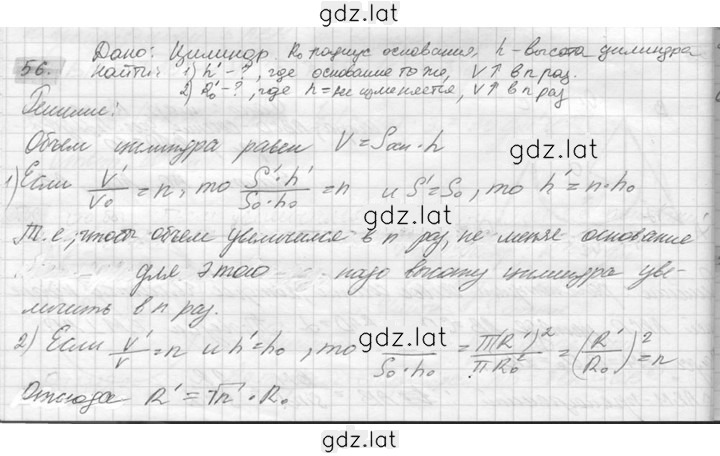 gdz.lat
56. Дано: Цилиндр R₀ радиус основания, h - высота цилиндра
Найти: 1) h' - ?, где основание то же, V↑ в n раз.
2) R₀' - ?, где h = не изменяется, V↑ в n раз
Решение:
Объем цилиндра равен V = Sосн · h
gdz.lat
1) Если V'/V₀ = n, то S'·h'/S₀·h₀ = n и S' = S₀, то h' = n·h₀
gdz.lat
Т.е., чтобы объем увеличился в n раз, не меняя основание
для этого надо высоту цилиндра уве-
личить в n раз.
gdz.lat
2) Если V'/V = n и h' = h₀, то /S₀·h₀ = π(R')²/πR₀² = (R'/R₀)² = n
Отсюда R' = √n · R₀
gdz.lat